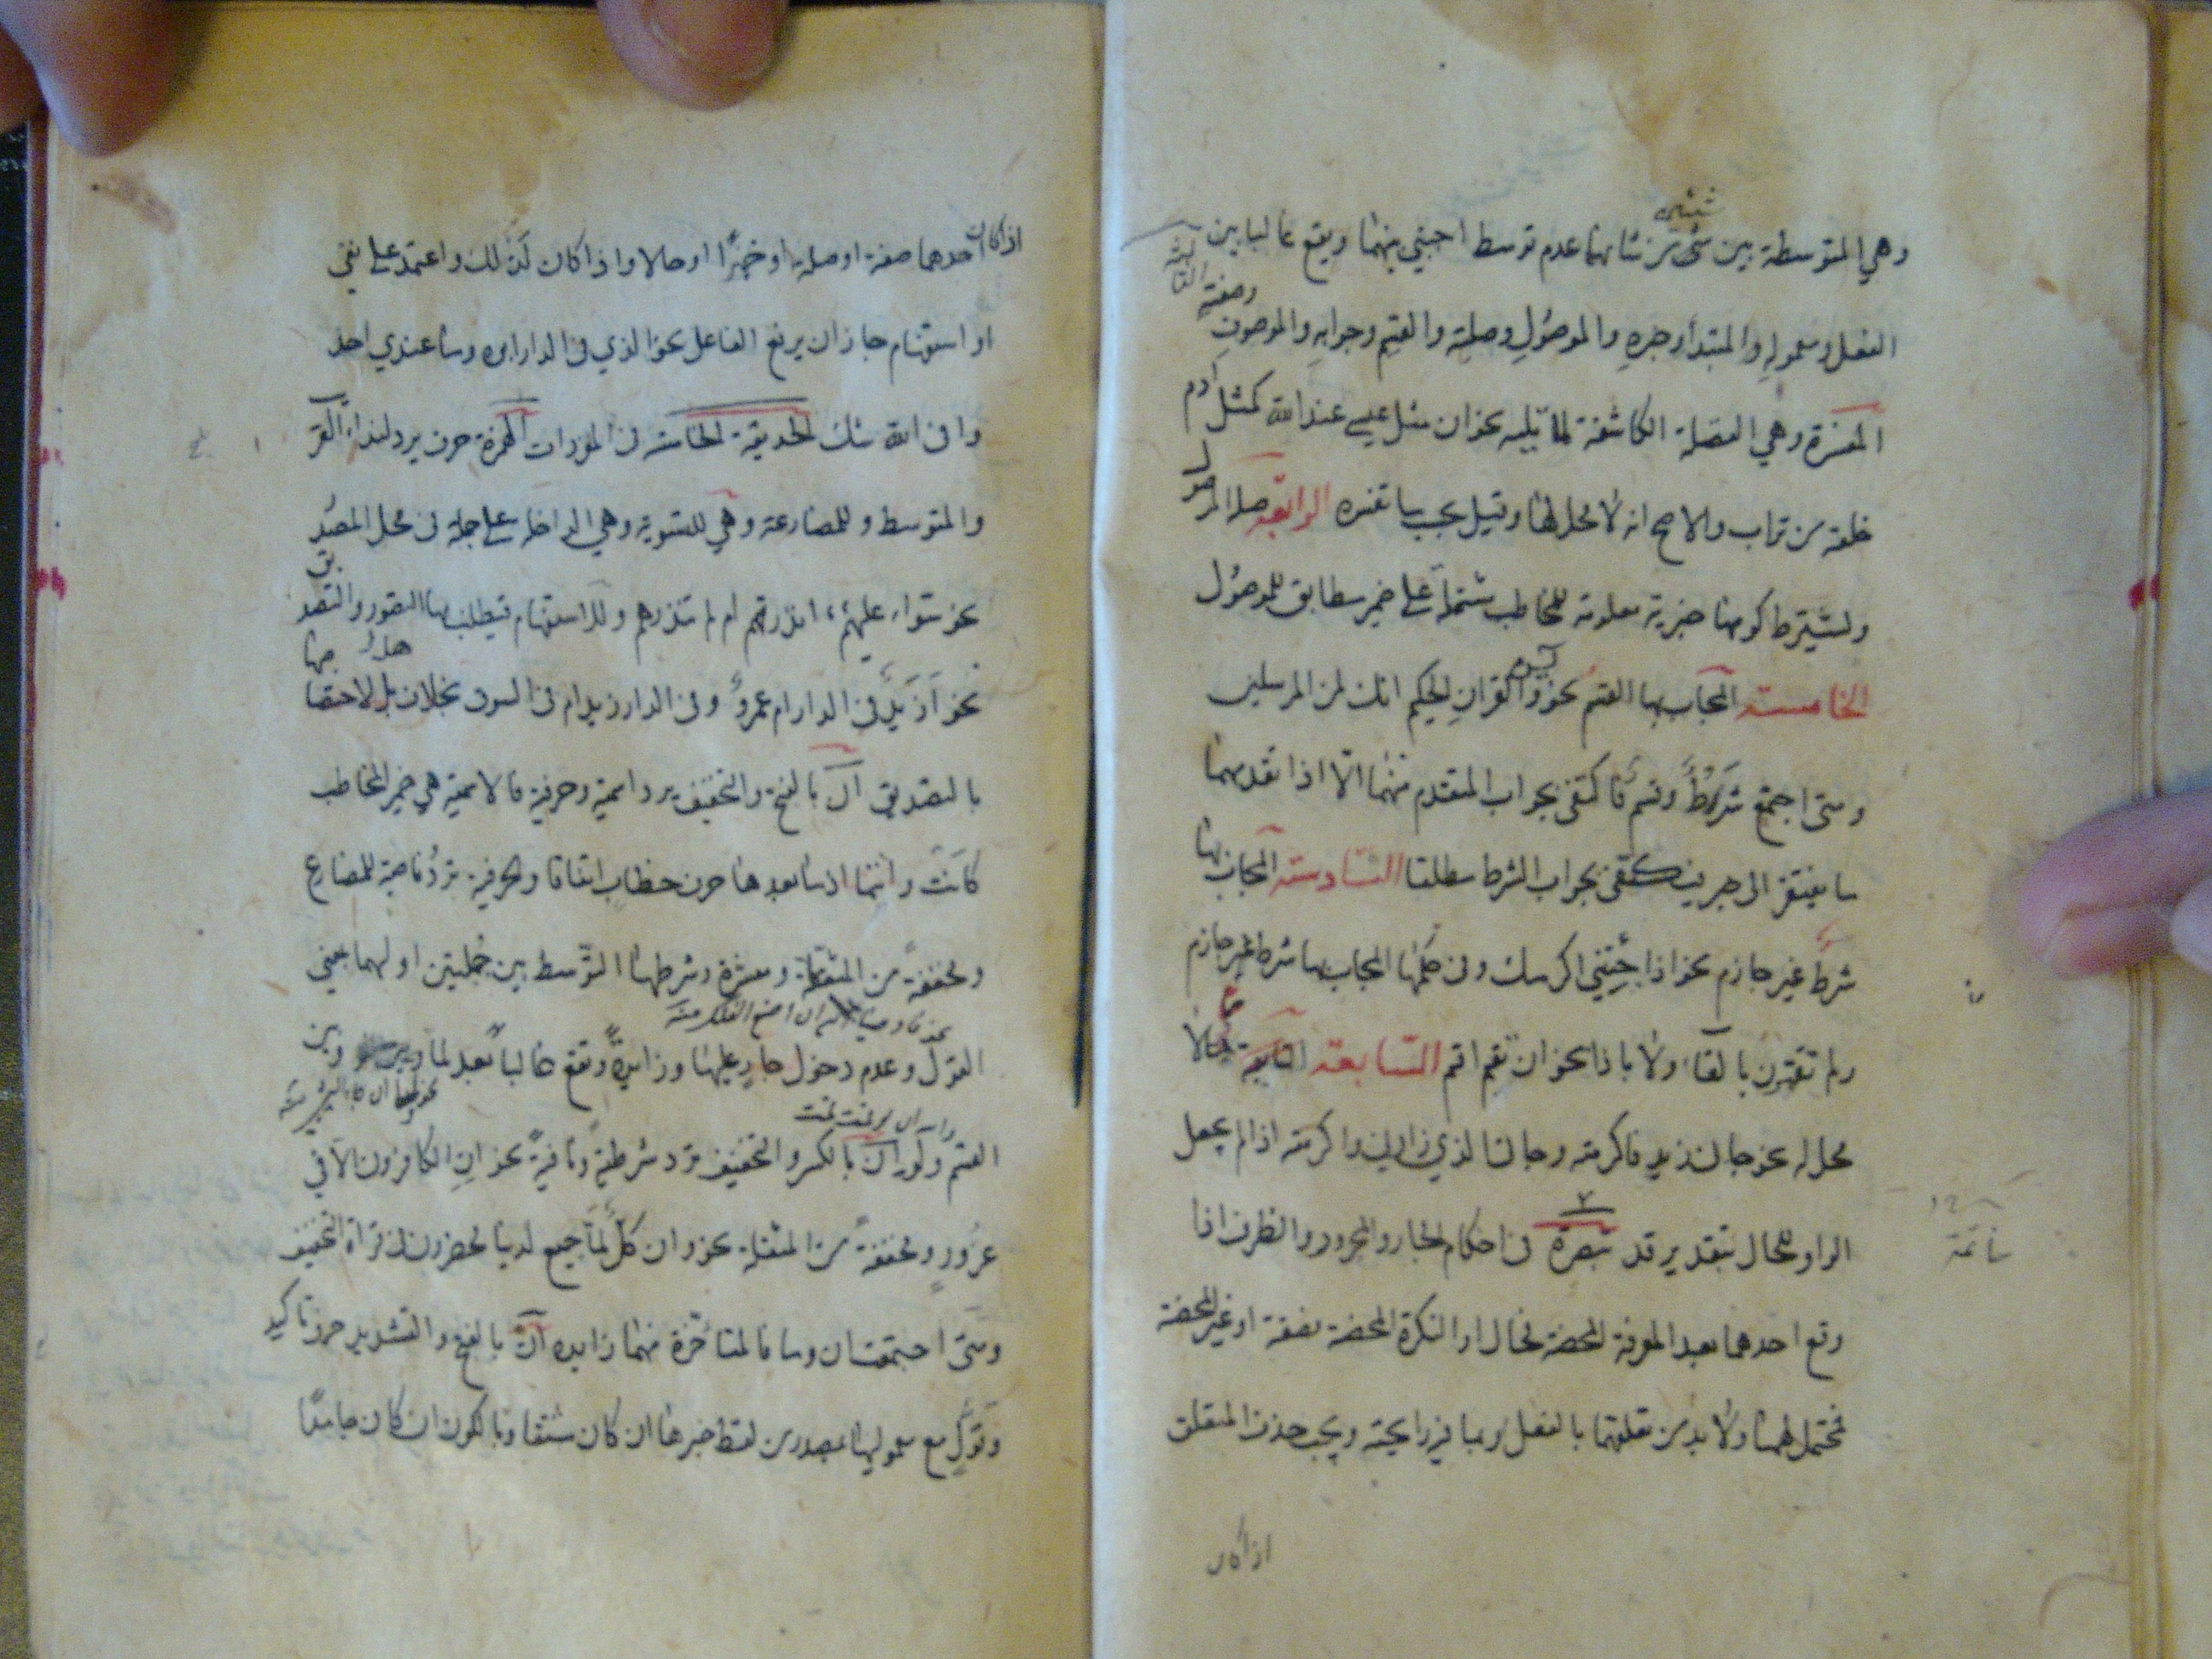 وهي المتوسطة بين شيئين من شانهما عدم توسط اجنبي بينهما ويقع غالبا بين
الفعل ومعموله والمبتدأ وخبره والموصول وصلته والقسم وجوابه والموصوف وصفته الثالثة
المفسرة وهي الفضلة الكاشفة لما تليه نحو ان مثل عيسى عند الله كمثل ادم
خلقه من تراب والاصح انه لا محل لها وقيل بحسب ما تفسره الرابعة صلة الموصول
ويشترط كونها خبرية معلومة للمخاطب مشتملة على ضمير مطابق للموصول
الخامسة المجاب بها القسم نحو يس والقران الحكيم انك لمن المرسلين
ومتى اجتمع شرط وقسم فاكتفى بجواب المتقدم منهما الا اذا تقدمهما
ما يفتقر الى خبر فيكتفى بجواب الشرط مطلقا السادسة المجاب بها
شرط غير جازم نحو اذا جئتني اكرمك وفي حكمها المجاب بها شرط غير جازم
ولم تقترن بالفاء ولا باذا نحو ان تقم اقم السابعة التابعة لما لا
محل له نحو جاءني زيد فاكرمته وجاءنا الذي زارني واكرمته اذا لم يجعل
الواو للحال بتقدير قد تبصرة في احكام الجار والمجرور والظرف اذا
وقع احدهما بعد المعرفة المحضة فحال او النكرة المحضة فصفة او غير المحضة
فمحتمل لهما ولا بد من تعلقهما بالفعل او بما فيه رايحته ويجب حذف المتعلق
اذا كان
اذا كان احدهما صفة او صلة او خبرا او حالا واذا كان كذلك واعتمد على نفي
او استفهام جاز ان يرفع الفاعل نحو الذي في الدار ابوه وما عندي احد
وافي الله شك الحديقة الخامسة في المفردات الهمزة حرف يرد لنداء القريب
والمتوسط وللمضارعة وهي للتسوية وهي الداخلة على جملة في محل المصدر
نحو سواء عليهم ءانذرتهم ام لم تنذرهم وللاستفهام فيطلب بها التصور والتصديق
نحو أزيد في الدار ام عمرو وفي الدار زيد ام في السوق بخلاف هل لاختصاصها
بالتصديق ان بالفتح والتخفيف يرد اسمية وحرفية فالاسمية هي ضمير المخاطب
كانت وانتما اذ ما بعدها حرف خطاب اتفاقا والحرفية ترد ناصبة للمضارع
ومخففة من المثقلة ومفسرة وشرطها التوسط بين جملتين اولهما بمعنى
القول وعدم دخول جار عليها وزايدة وتقع غالبا بعد لما وبين
القسم ولو ان بالكسر والتخفيف ترد شرطية ونافية نحو ان الكافرون الا في
غرور ومخففة من المثقلة نحو وان كل لما جميع لدينا محضرون في قراءة التخفيف
ومتى اجتمعت ان وما فالمتأخرة منهما زايدة ان بالفتح والتشديد حرف تاكيد
وتؤول مع معموليها بمصدر من لفظ خبرها ان كان مشتقا وبالكون ان كان جامدا